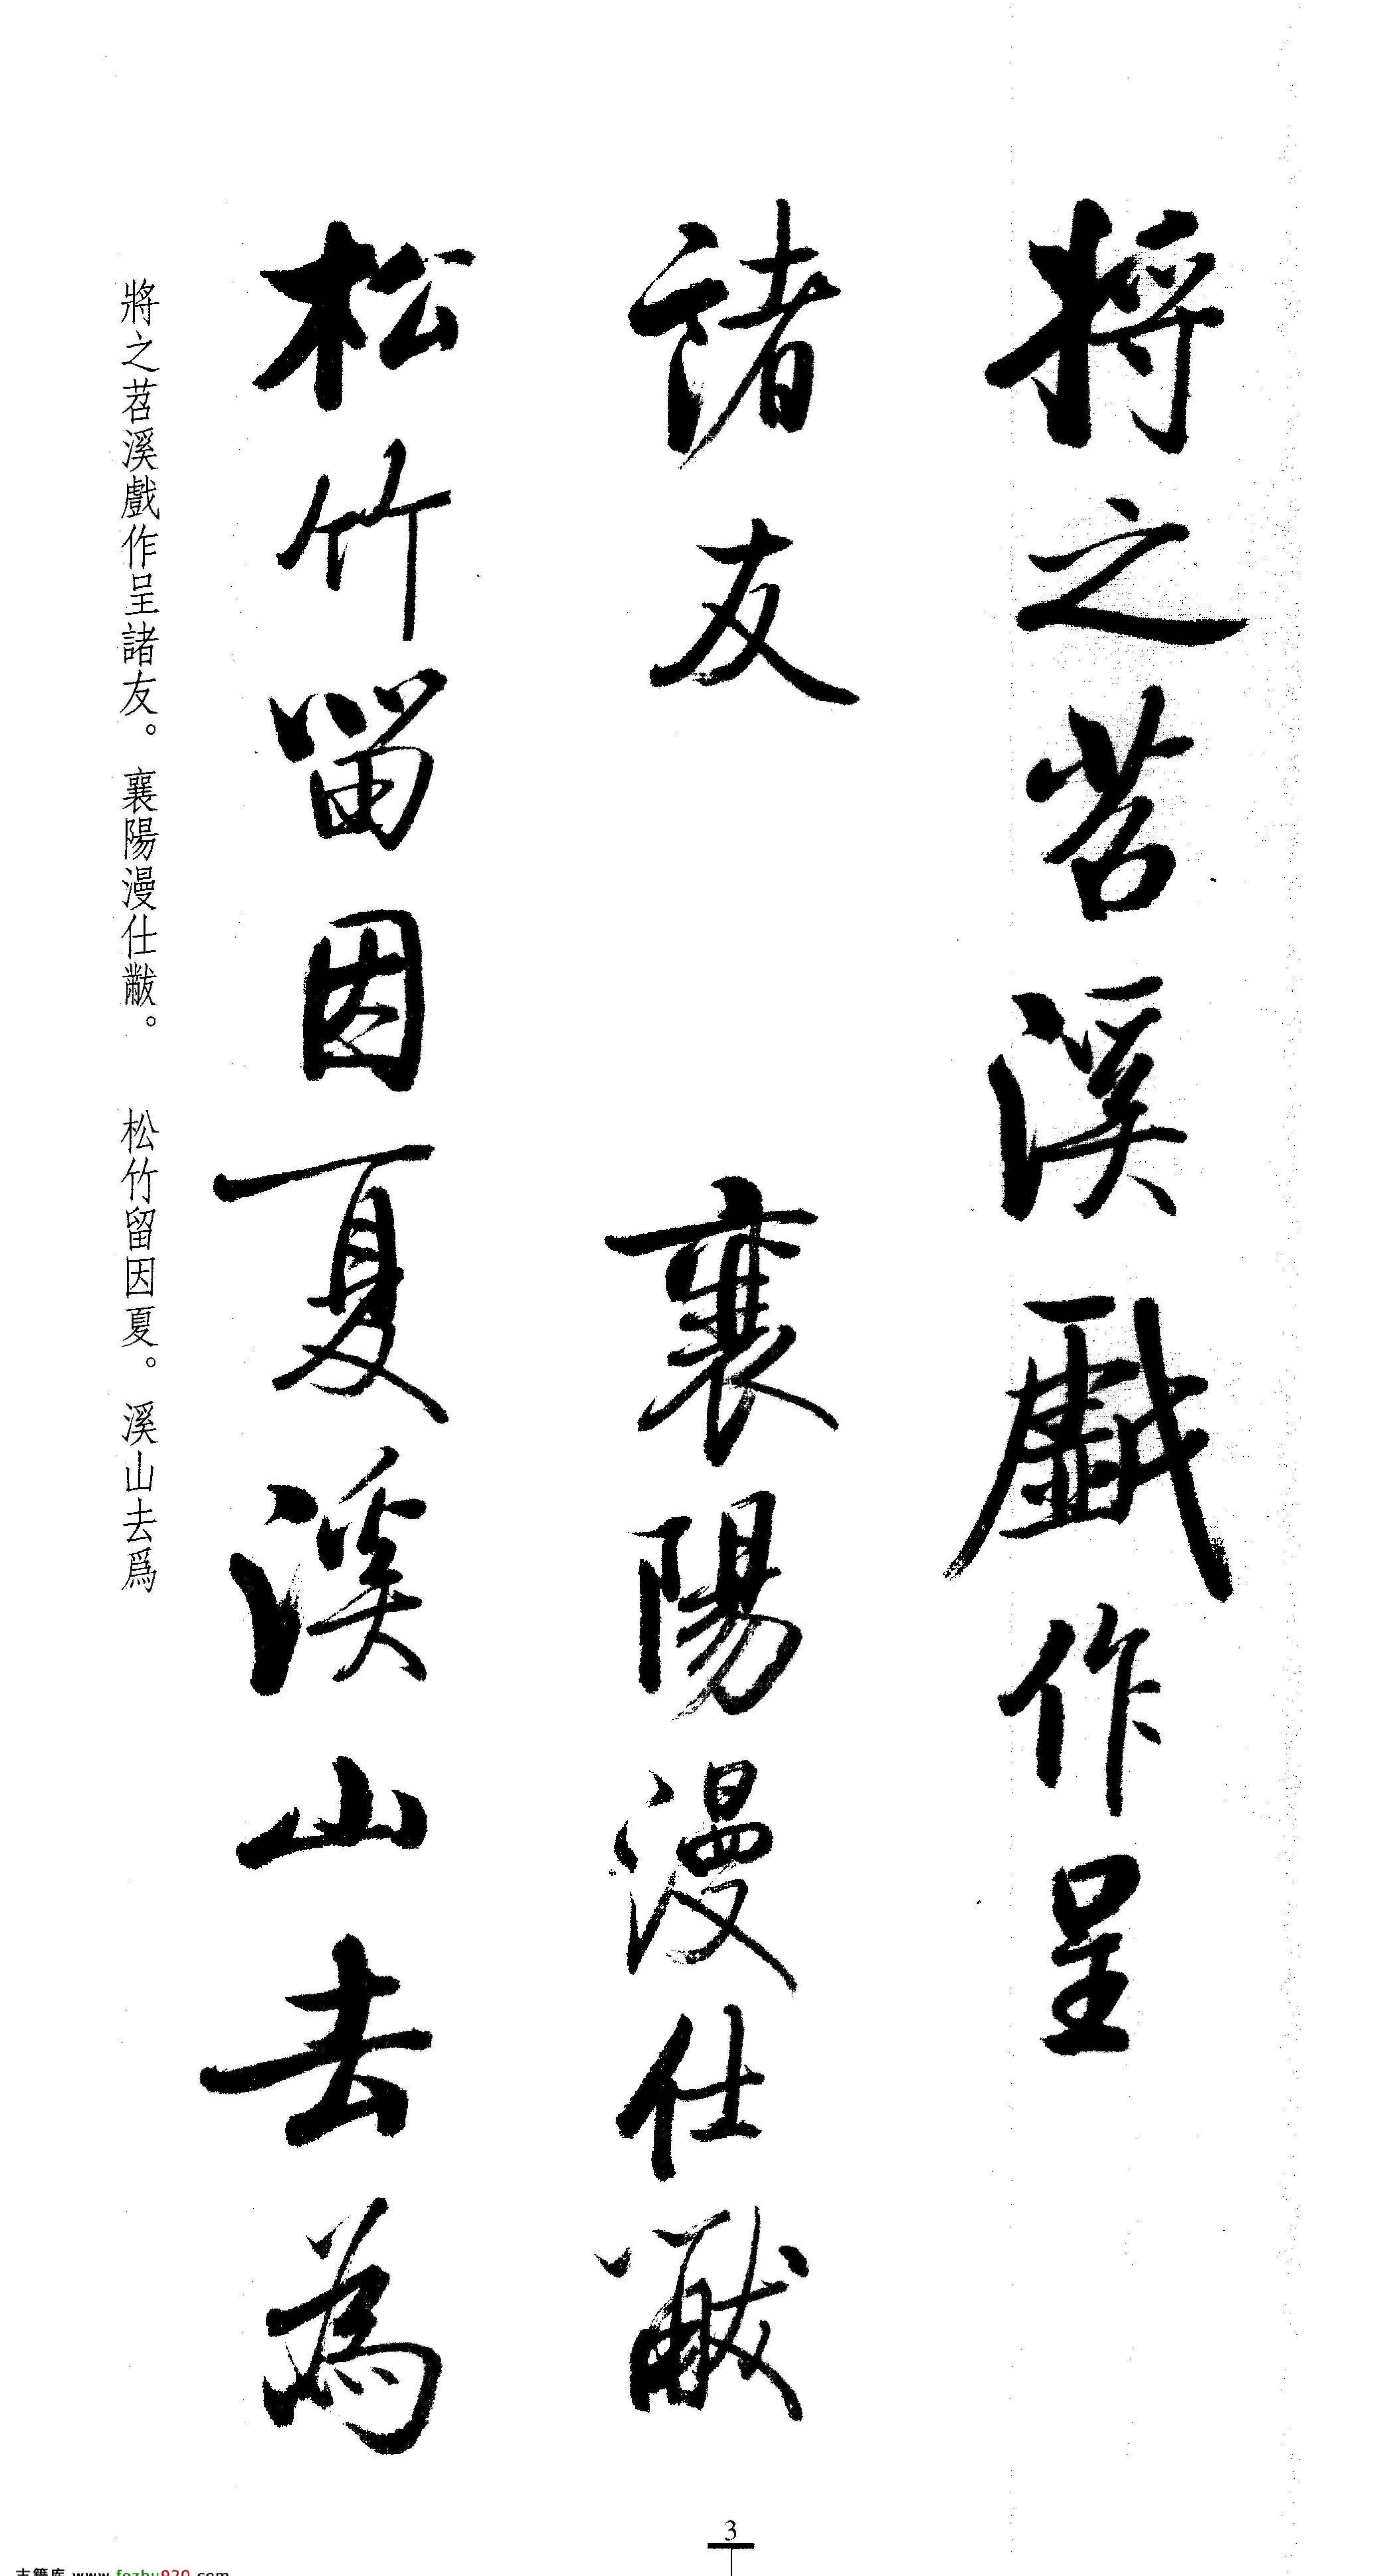 將之苕溪戲作呈
諸友 襄陽漫仕黻
松竹留因夏溪山去為
將之苕溪戲作呈諸友。襄陽漫仕黻。 松竹留因夏。溪山去爲
3